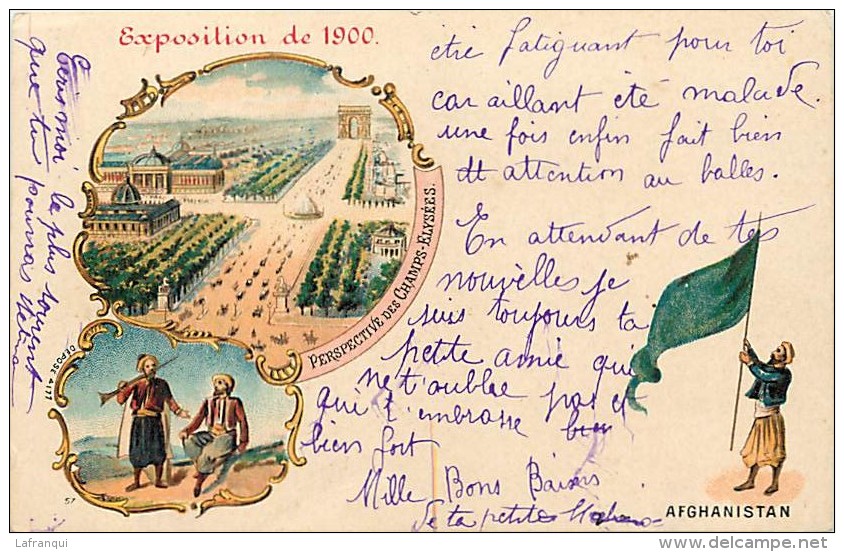 Exposition de 1900.
PERSPECTIVE DES CHAMPS-ELYSÉES.
DEPOSÉ 4127
57
AFGHANISTAN
être fatiguant pour toi
car aillant été malade.
une fois enfin fait bien
att attention au balles.
En attendant de tes
nouvelles je
suis toujours ta
petite amie qui
ne t'oublie pas et
qui t'embrasse bien
bien fort
Mille Bons Baisers
de ta petite
Ecris moi le plus souvent
que tu pourras
Lafranqui
www.delcampe.net